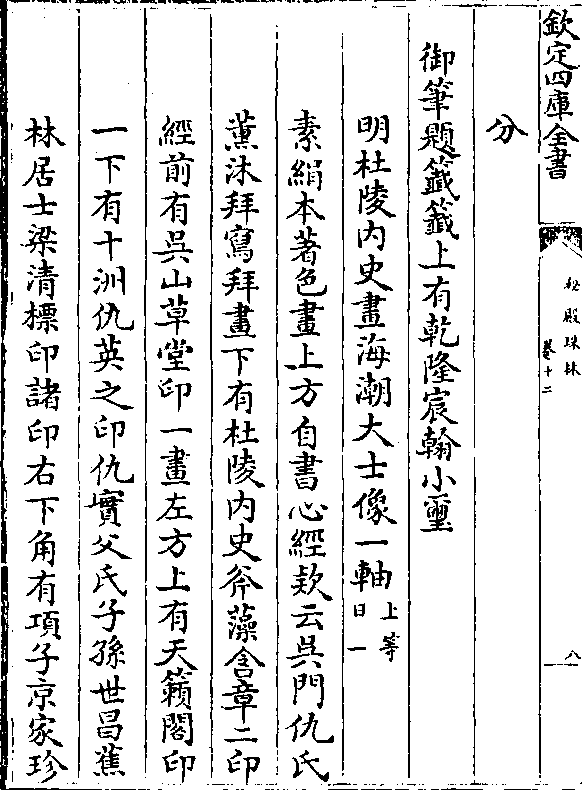 欽定四庫全書
秘殿珠林
卷十二
八
分
御筆題籤籤上有乾隆宸翰小璽
明杜陵内史畫海潮大士像一軸上等日一
素絹本著色畫上方自書心經款云吳門仇氏
薰沐拜寫拜畫下有杜陵内史斧藻含章二印
經前有吳山草堂印一畫左方上有天籟閣印
一下有十洲仇英之印仇實父氏子孫世昌蕉
林居士梁清標印諸印右下角有項子京家珍